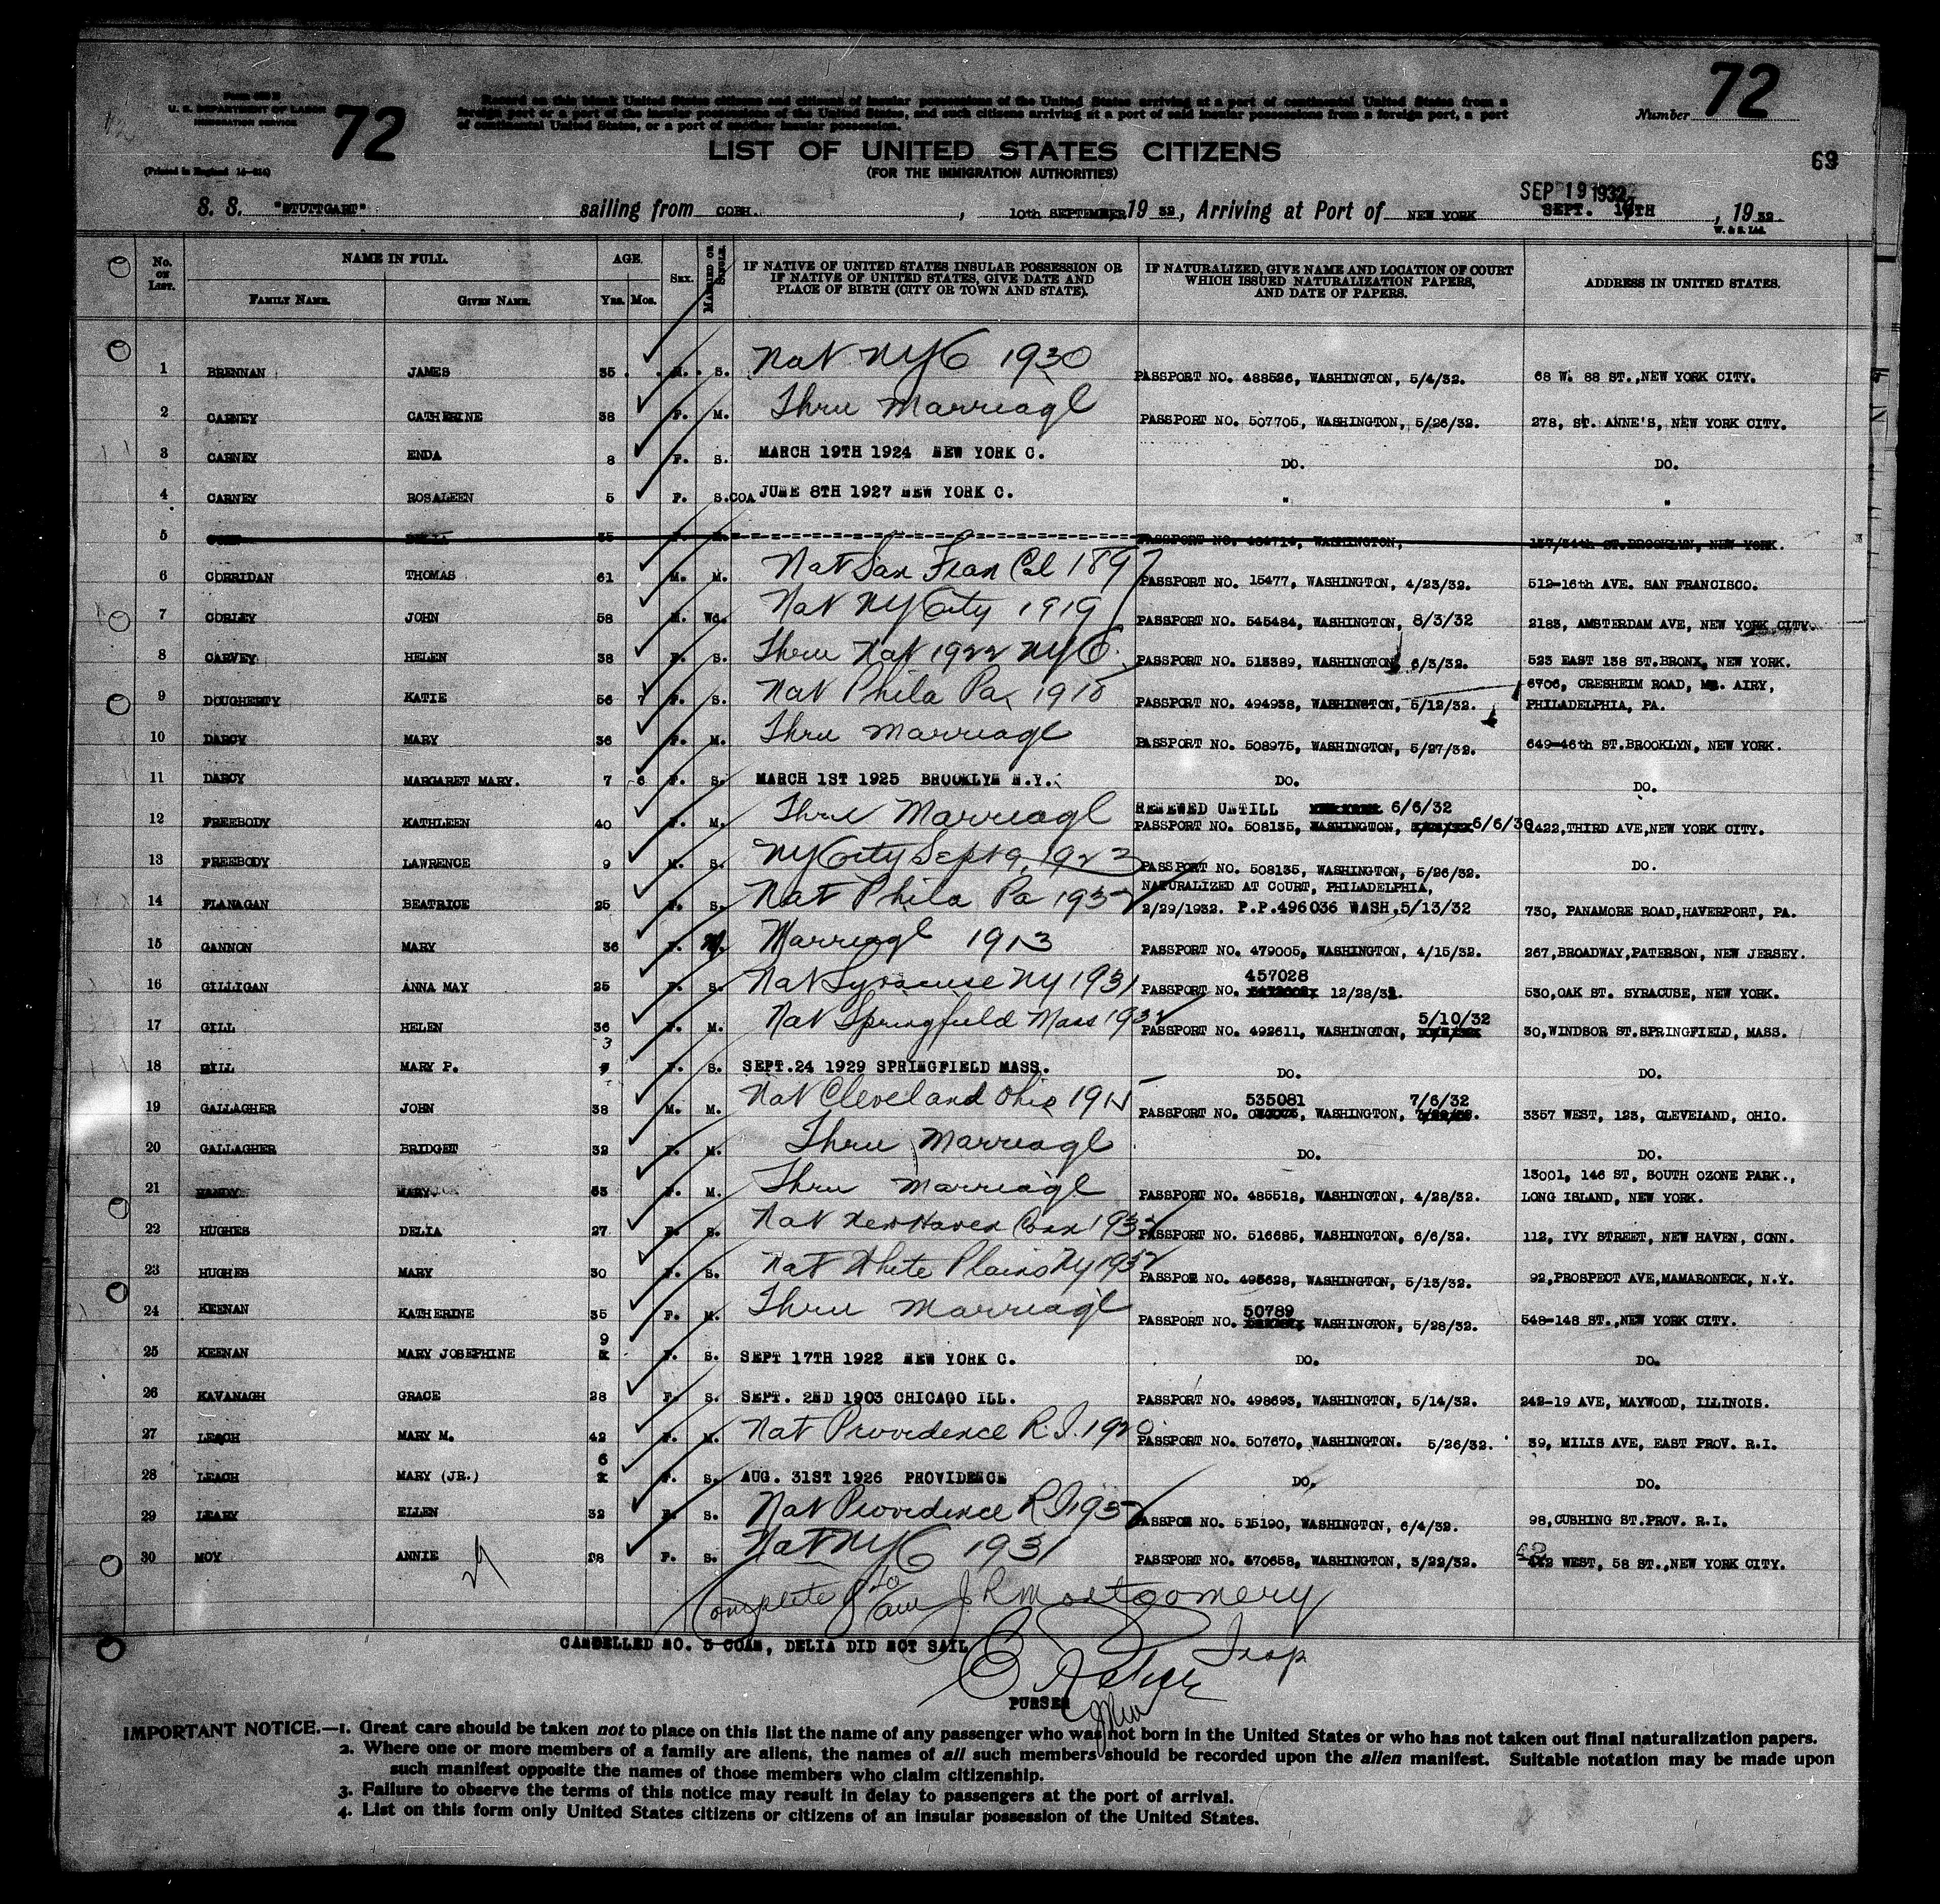 72
U. S. DEPARTMENT OF LABOR
IMMIGRATION SERVICE
(Printed in England
Record on this blank United States citizens and citizens of insular possessions of the United States arriving at a port of continental United States from a
foreign port or a port of the insular possessions of the United States, and such citizens arriving at a port of said insular possessions from a foreign port, a port
of continental United States, or a port of another insular possession.
Number 72
LIST OF UNITED STATES CITIZENS
(FOR THE IMMIGRATION AUTHORITIES)
69
SEP 19 1932
S. S. "STUTTGART" sailing from COBH. , 10th SEPTEMBER 19 32, Arriving at Port of NEW YORK SEPT. TH , 19 32.
W. & S. Ltd.
No. ON LIST. NAME IN FULL. AGE. SEX. MARRIED OR SINGLE. IF NATIVE OF UNITED STATES INSULAR POSSESSION OR IF NATIVE OF UNITED STATES, GIVE DATE AND PLACE OF BIRTH (CITY OR TOWN AND STATE). IF NATURALIZED, GIVE NAME AND LOCATION OF COURT WHICH ISSUED NATURALIZATION PAPERS, AND DATE OF PAPERS. ADDRESS IN UNITED STATES.
FAMILY NAME. GIVEN NAME. YRS. MOS.
1 BRENNAN JAMES 35 M. S. Nat NYC 1930 PASSPORT NO. 488526, WASHINGTON, 5/4/32. 68 W. 88 ST.,NEW YORK CITY.
2 CARNEY CATHERINE 38 F. M. Thru Marriage PASSPORT NO. 507705, WASHINGTON, 5/26/32. 278, ST. ANNE'S, NEW YORK CITY.
3 CARNEY ENDA 8 F. S. MARCH 19TH 1924 NEW YORK C. DO. DO.
4 CARNEY ROSALEEN 5 F. S. COA JUNE 8TH 1927 NEW YORK C. " "
5 DELIA 35 F. M. PASSPORT NO. 484714, WASHINGTON, 137/34th ST.BROOKLYN, NEW YORK.
6 CORRIDAN THOMAS 61 M. M. Nat San Fran Cal 1897 PASSPORT NO. 15477, WASHINGTON, 4/23/32. 512-16th AVE. SAN FRANCISCO.
7 CORLEY JOHN 58 M. Wd. Nat NY City 1919 PASSPORT NO. 545484, WASHINGTON, 8/3/32 2183, AMSTERDAM AVE, NEW YORK CITY.
8 CARVEY HELEN 38 F. S. Thru Nat 1922 NYC. PASSPORT NO. 513389, WASHINGTON, 6/3/32. 523 EAST 138 ST.BRONX, NEW YORK.
9 DOUGHERTY KATIE 56 7 F. S. Nat Phila Pa 1918 PASSPORT NO. 494938, WASHINGTON, 5/12/32. 6706, CRESHEIM ROAD, MT. AIRY,
PHILADELPHIA, PA.
10 DARCY MARY 36 F. M. Thru Marriage PASSPORT NO. 508975, WASHINGTON, 5/27/32. 649-46th ST.BROOKLYN, NEW YORK.
11 DARCY MARGARET MARY. 7 6 F. S. MARCH 1ST 1925 BROOKLYN N.Y. DO. DO.
RENEWED UNTILL 6/6/32
12 FREEBODY KATHLEEN 40 F. M. Thru Marriage PASSPORT NO. 508135, WASHINGTON, 6/6/30 1422,THIRD AVE,NEW YORK CITY.
13 FREEBODY LAWRENCE 9 M. S. NY City Sept 9, 1923 PASSPORT NO. 508135, WASHINGTON, 5/26/32. DO.
NATURALIZED AT COURT, PHILADELPHIA,
14 FLANAGAN BEATRICE 25 F. S. Nat Phila Pa 1932 2/29/1932. P.P.496036 WASH,5/13/32 730, PANAMORE ROAD,HAVERPORT, PA.
15 GANNON MARY 36 F. M. Marriage 1913 PASSPORT NO. 479005, WASHINGTON, 4/15/32. 267,BROADWAY,PATERSON, NEW JERSEY.
457028
16 GILLIGAN ANNA MAY 25 F. S. Nat Syracuse NY 1931 PASSPORT NO. 12/28/31. 530,OAK ST. SYRACUSE, NEW YORK.
5/10/32
17 GILL HELEN 36 F. M. Nat Springfield Mass 1932 PASSPORT NO. 492611, WASHINGTON, 30,WINDSOR ST.SPRINGFIELD, MASS.
3
18 GILL MARY P. F. S. SEPT.24 1929 SPRINGFIELD MASS. DO. DO.
535081 7/6/32
19 GALLAGHER JOHN 38 M. M. Nat Cleveland Ohio 1915 PASSPORT NO. , WASHINGTON, 3357 WEST, 123, CLEVELAND, OHIO.
20 GALLAGHER BRIDGET 32 F. M. Thru Marriage DO. DO.
13001, 146 ST, SOUTH OZONE PARK.,
21 HANDY MARY 53 F. M. Thru Marriage PASSPORT NO. 485518, WASHINGTON, 4/28/32. LONG ISLAND, NEW YORK.
22 HUGHES DELIA 27 F. S. Nat New Haven Conn 1932 PASSPORT NO. 516685, WASHINGTON, 6/6/32. 112, IVY STREET, NEW HAVEN, CONN.
23 HUGHES MARY 30 F. S. Nat White Plains NY 1932 PASSPOE NO. 495628, WASHINGTON, 5/13/32. 92,PROSPECT AVE,MAMARONECK, N.Y.
50789
24 KEENAN KATHERINE 35 F. M. Thru Marriage PASSPORT NO. WASHINGTON, 5/28/32. 548-148 ST.,NEW YORK CITY.
9
25 KEENAN MARY JOSEPHINE F. S. SEPT 17TH 1922 NEW YORK C. DO. DO.
26 KAVANAGH GRACE 28 F. S. SEPT. 2ND 1903 CHICAGO ILL. PASSPORT NO. 498693, WASHINGTON, 5/14/32. 242-19 AVE, MAYWOOD, ILLINOIS.
27 LEACH MARY M. 42 F. M. Nat Providence R.I. 1920. PASSPORT NO. 507670, WASHINGTON. 5/26/32. 39, MILIS AVE, EAST PROV. R.I.
6
28 LEACH MARY (JR.) F. S. AUG. 31ST 1926 PROVIDENCE DO. DO.
29 LEARY ELLEN 32 F. S. Nat Providence R I 1932 PASSPOE NO. 515190, WASHINGTON, 6/4/32. 98,CUSHING ST.PROV. R.I.
30 MOY ANNIE 28 F. S. Nat NYC 1931 PASSPORT NO. 470658, WASHINGTON, 3/22/32. WEST, 58 ST.,NEW YORK CITY.
Complete J R Montgomery
Insp
CANCELLED NO. 5 COAN, DELIA DID NOT SAIL
PURSER
IMPORTANT NOTICE.—1. Great care should be taken not to place on this list the name of any passenger who was not born in the United States or who has not taken out final naturalization papers.
2. Where one or more members of a family are aliens, the names of all such members should be recorded upon the alien manifest. Suitable notation may be made upon
such manifest opposite the names of those members who claim citizenship.
3. Failure to observe the terms of this notice may result in delay to passengers at the port of arrival.
4. List on this form only United States citizens or citizens of an insular possession of the United States.